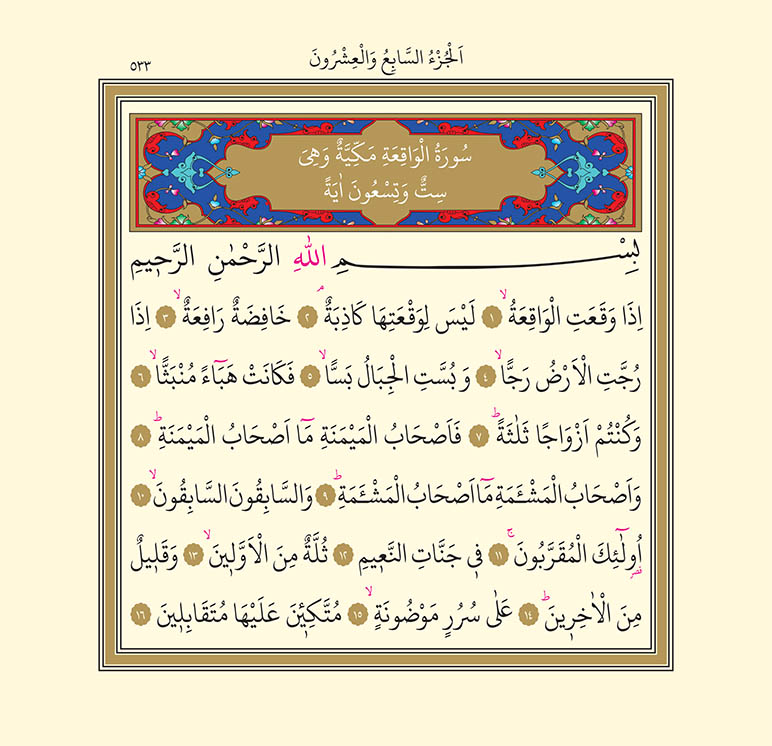 اَلْجُزْءُ السَّابِعُ وَالْعِشْرُونَ ٥٣٣
سُورَةُ الْوَاقِعَةِ مَكِّيَّةٌ وَهِىَ
سِتٌّ وَتِسْعُونَ اٰيَةً
بِسْمِ اللّٰهِ الرَّحْمٰنِ الرَّحٖيمِ
اِذَا وَقَعَتِ الْوَاقِعَةُۙ ١ لَيْسَ لِوَقْعَتِهَا كَاذِبَةٌۘ ٢ خَافِضَةٌ رَافِعَةٌۙ ٣ اِذَا
رُجَّتِ الْاَرْضُ رَجًّاۙ ٤ وَبُسَّتِ الْجِبَالُ بَسًّاۙ ٥ فَكَانَتْ هَبَٓاءً مُنْبَثًّاۙ ٦
وَكُنْتُمْ اَزْوَاجًا ثَلٰثَةًؕ ٧ فَاَصْحَابُ الْمَيْمَنَةِ مَٓا اَصْحَابُ الْمَيْمَنَةِؕ ٨
وَاَصْحَابُ الْمَشْـَٔمَةِ مَٓا اَصْحَابُ الْمَشْـَٔمَةِؕ ٩ وَالسَّابِقُونَ السَّابِقُونَۙ ١٠
اُو۬لٰٓئِكَ الْمُقَرَّبُونَۚ ١١ فٖى جَنَّاتِ النَّعٖيمِ ١٢ ثُلَّةٌ مِنَ الْاَوَّلٖينَۙ ١٣ وَقَلٖيلٌ
مِنَ الْاٰخِرٖينَؕ ١٤ عَلٰى سُرُرٍ مَوْضُونَةٍۙ ١٥ مُتَّكِـٖٔينَ عَلَيْهَا مُتَقَابِلٖينَ ١٦